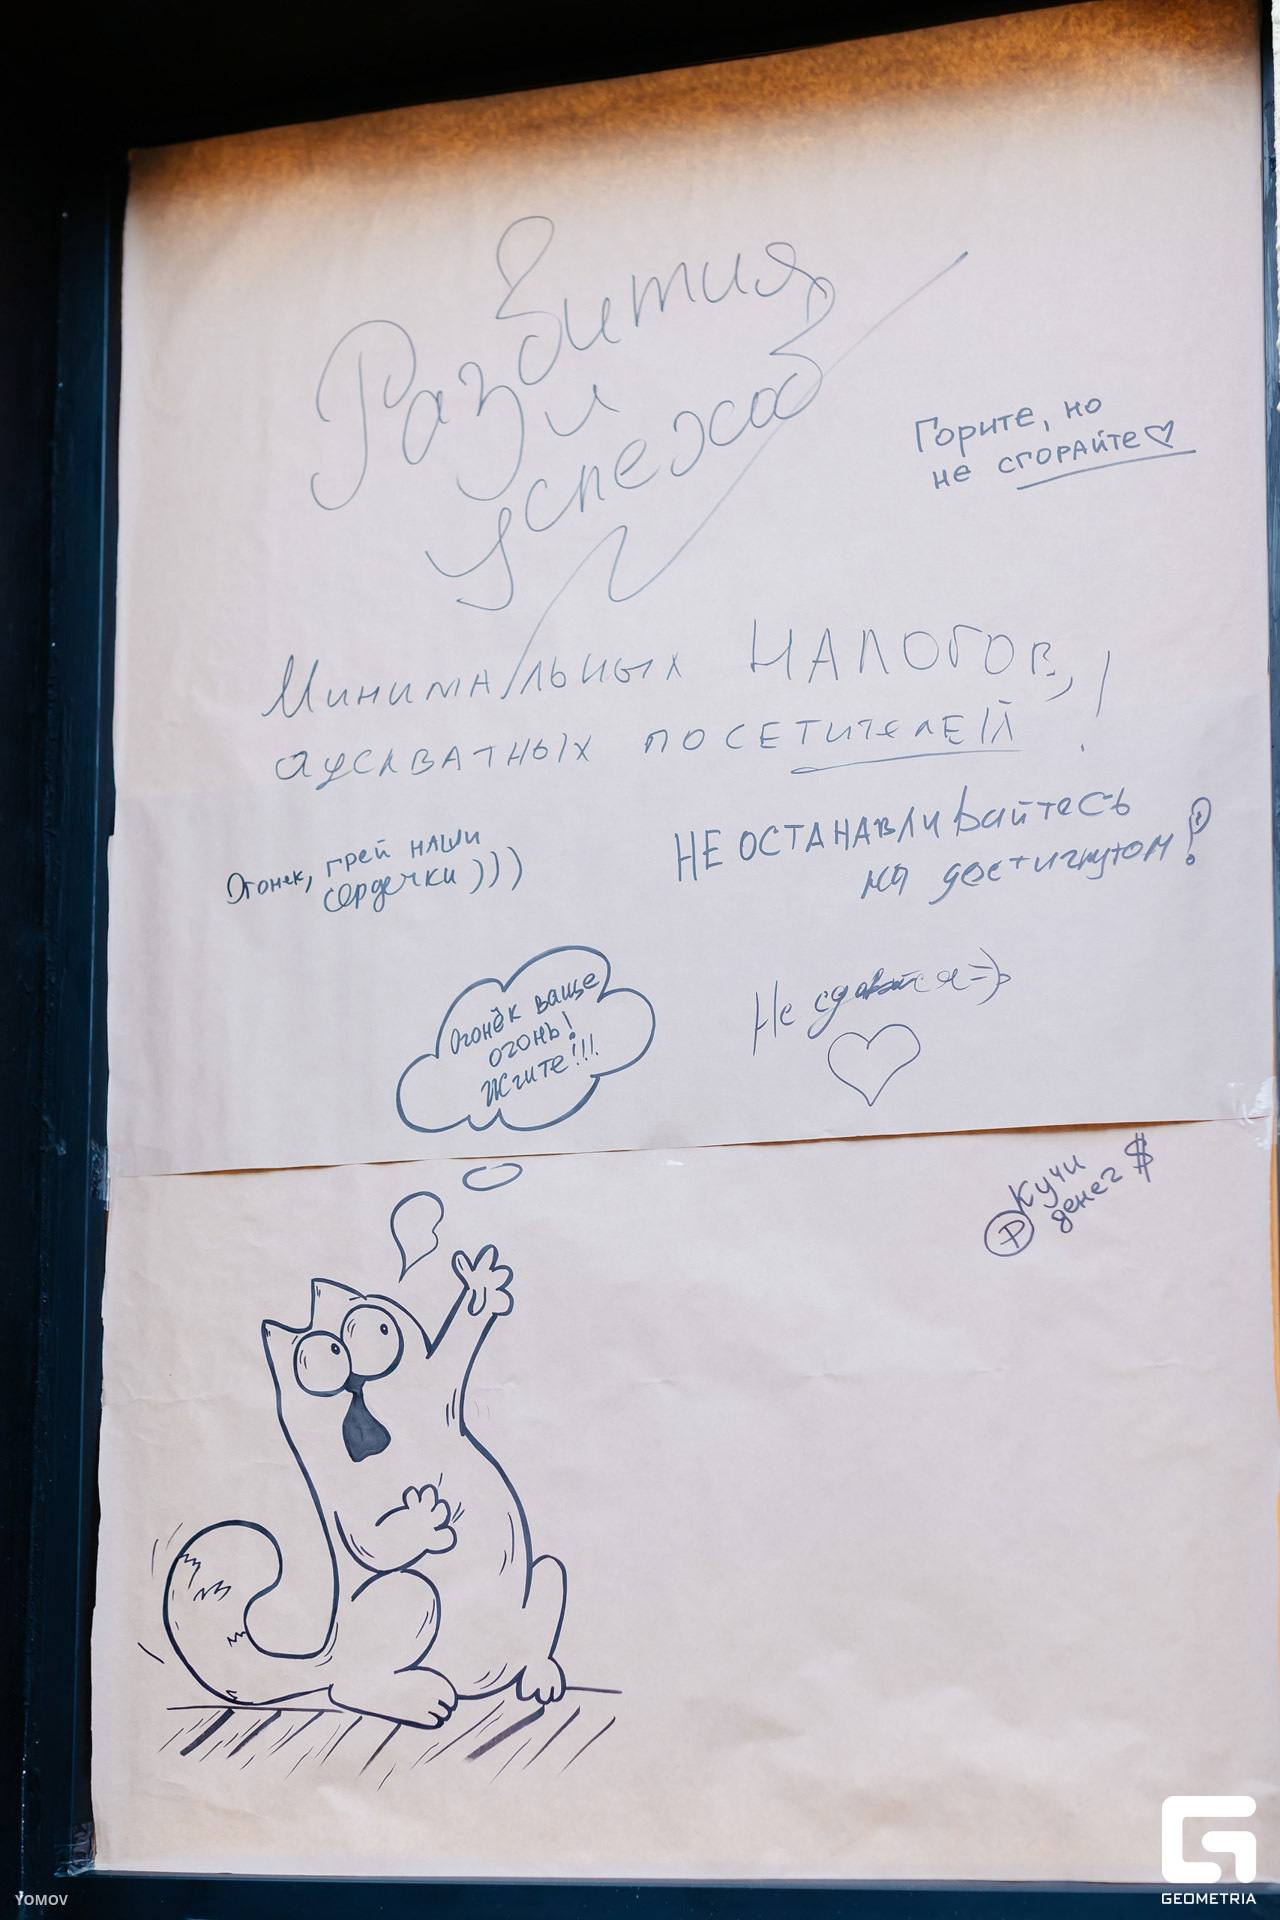 Развития
и
успехов
Горите, но
не сгорайте♡
Минимальных НАЛОГОВ,
адекватных посетителей!
Огонек, грей наши
сердечки)))
НЕ ОСТАНАВЛИвайтесь
на достигнутом!
Огонёк ваще
огонь!
Жгите!!!
Не сдавайся=)
Кучи
денег $
₽
YOMOV
GEOMETRIA